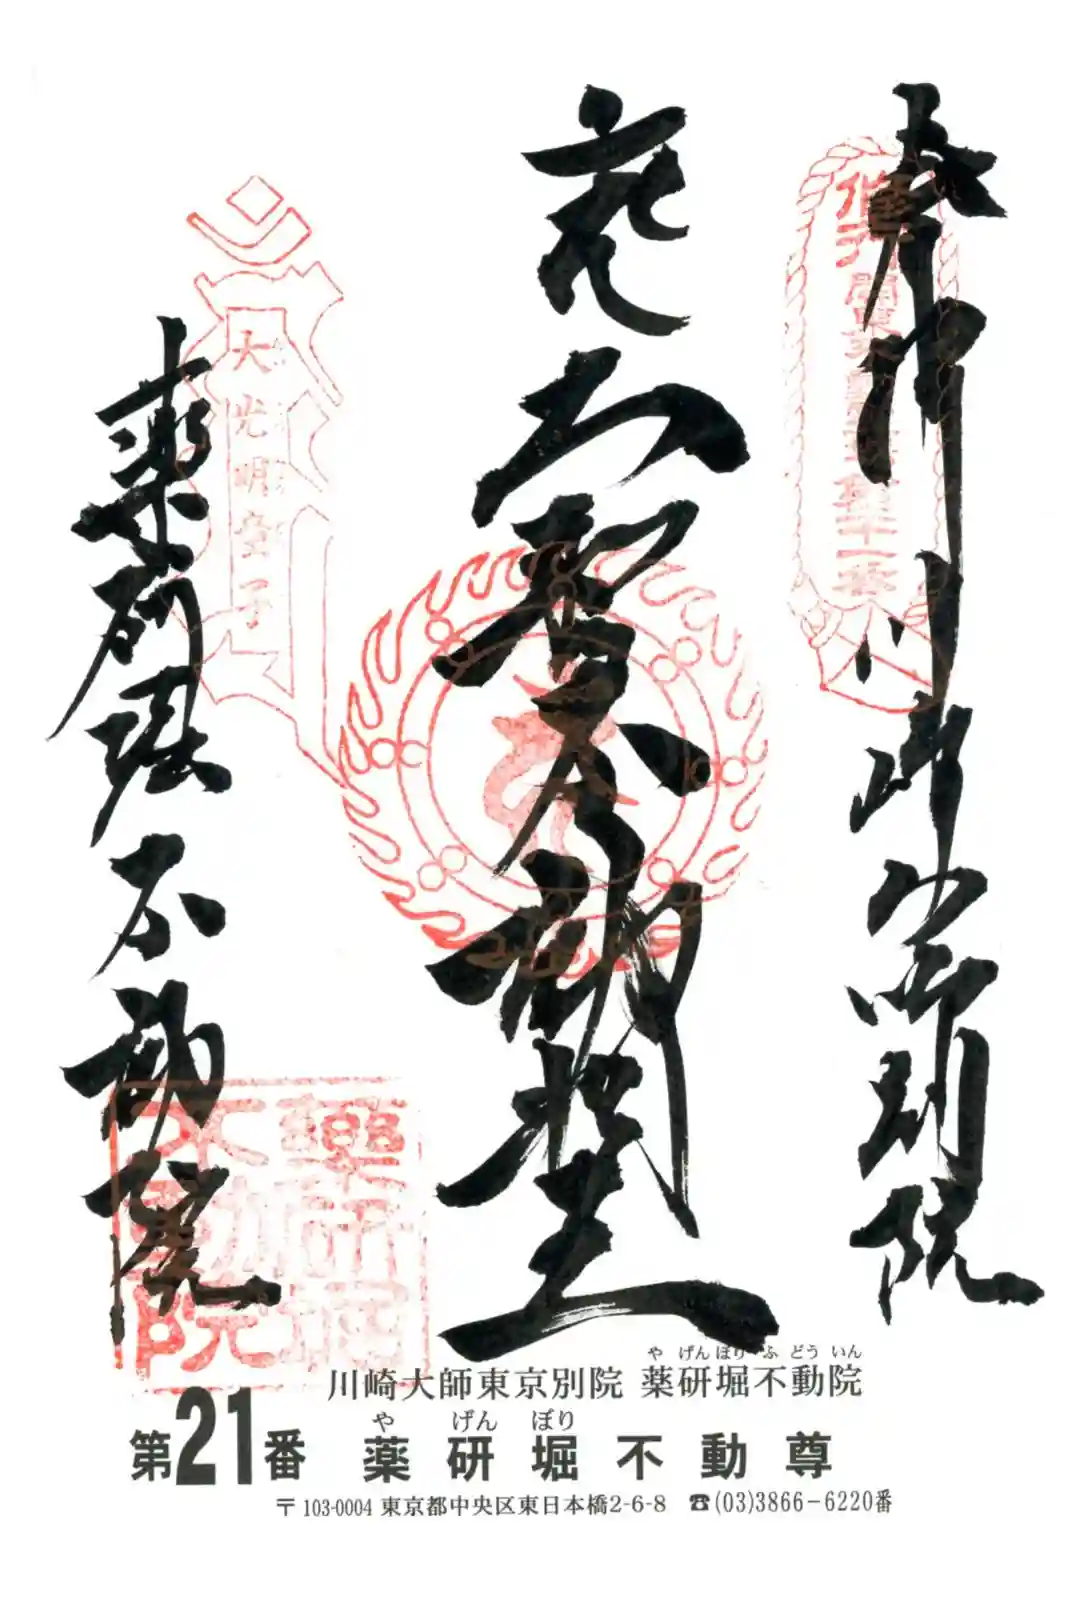 奉拝
川崎大師別院
不動明王
薬研堀不動院
大光明童子
藥研堀
不動院
や げんぼり ふ どう いん
川崎大師東京別院 薬研堀不動院
や げん ぼり
第21番 薬研堀不動尊
〒103-0004 東京都中央区東日本橋2-6-8 ☎(03)3866-6220番